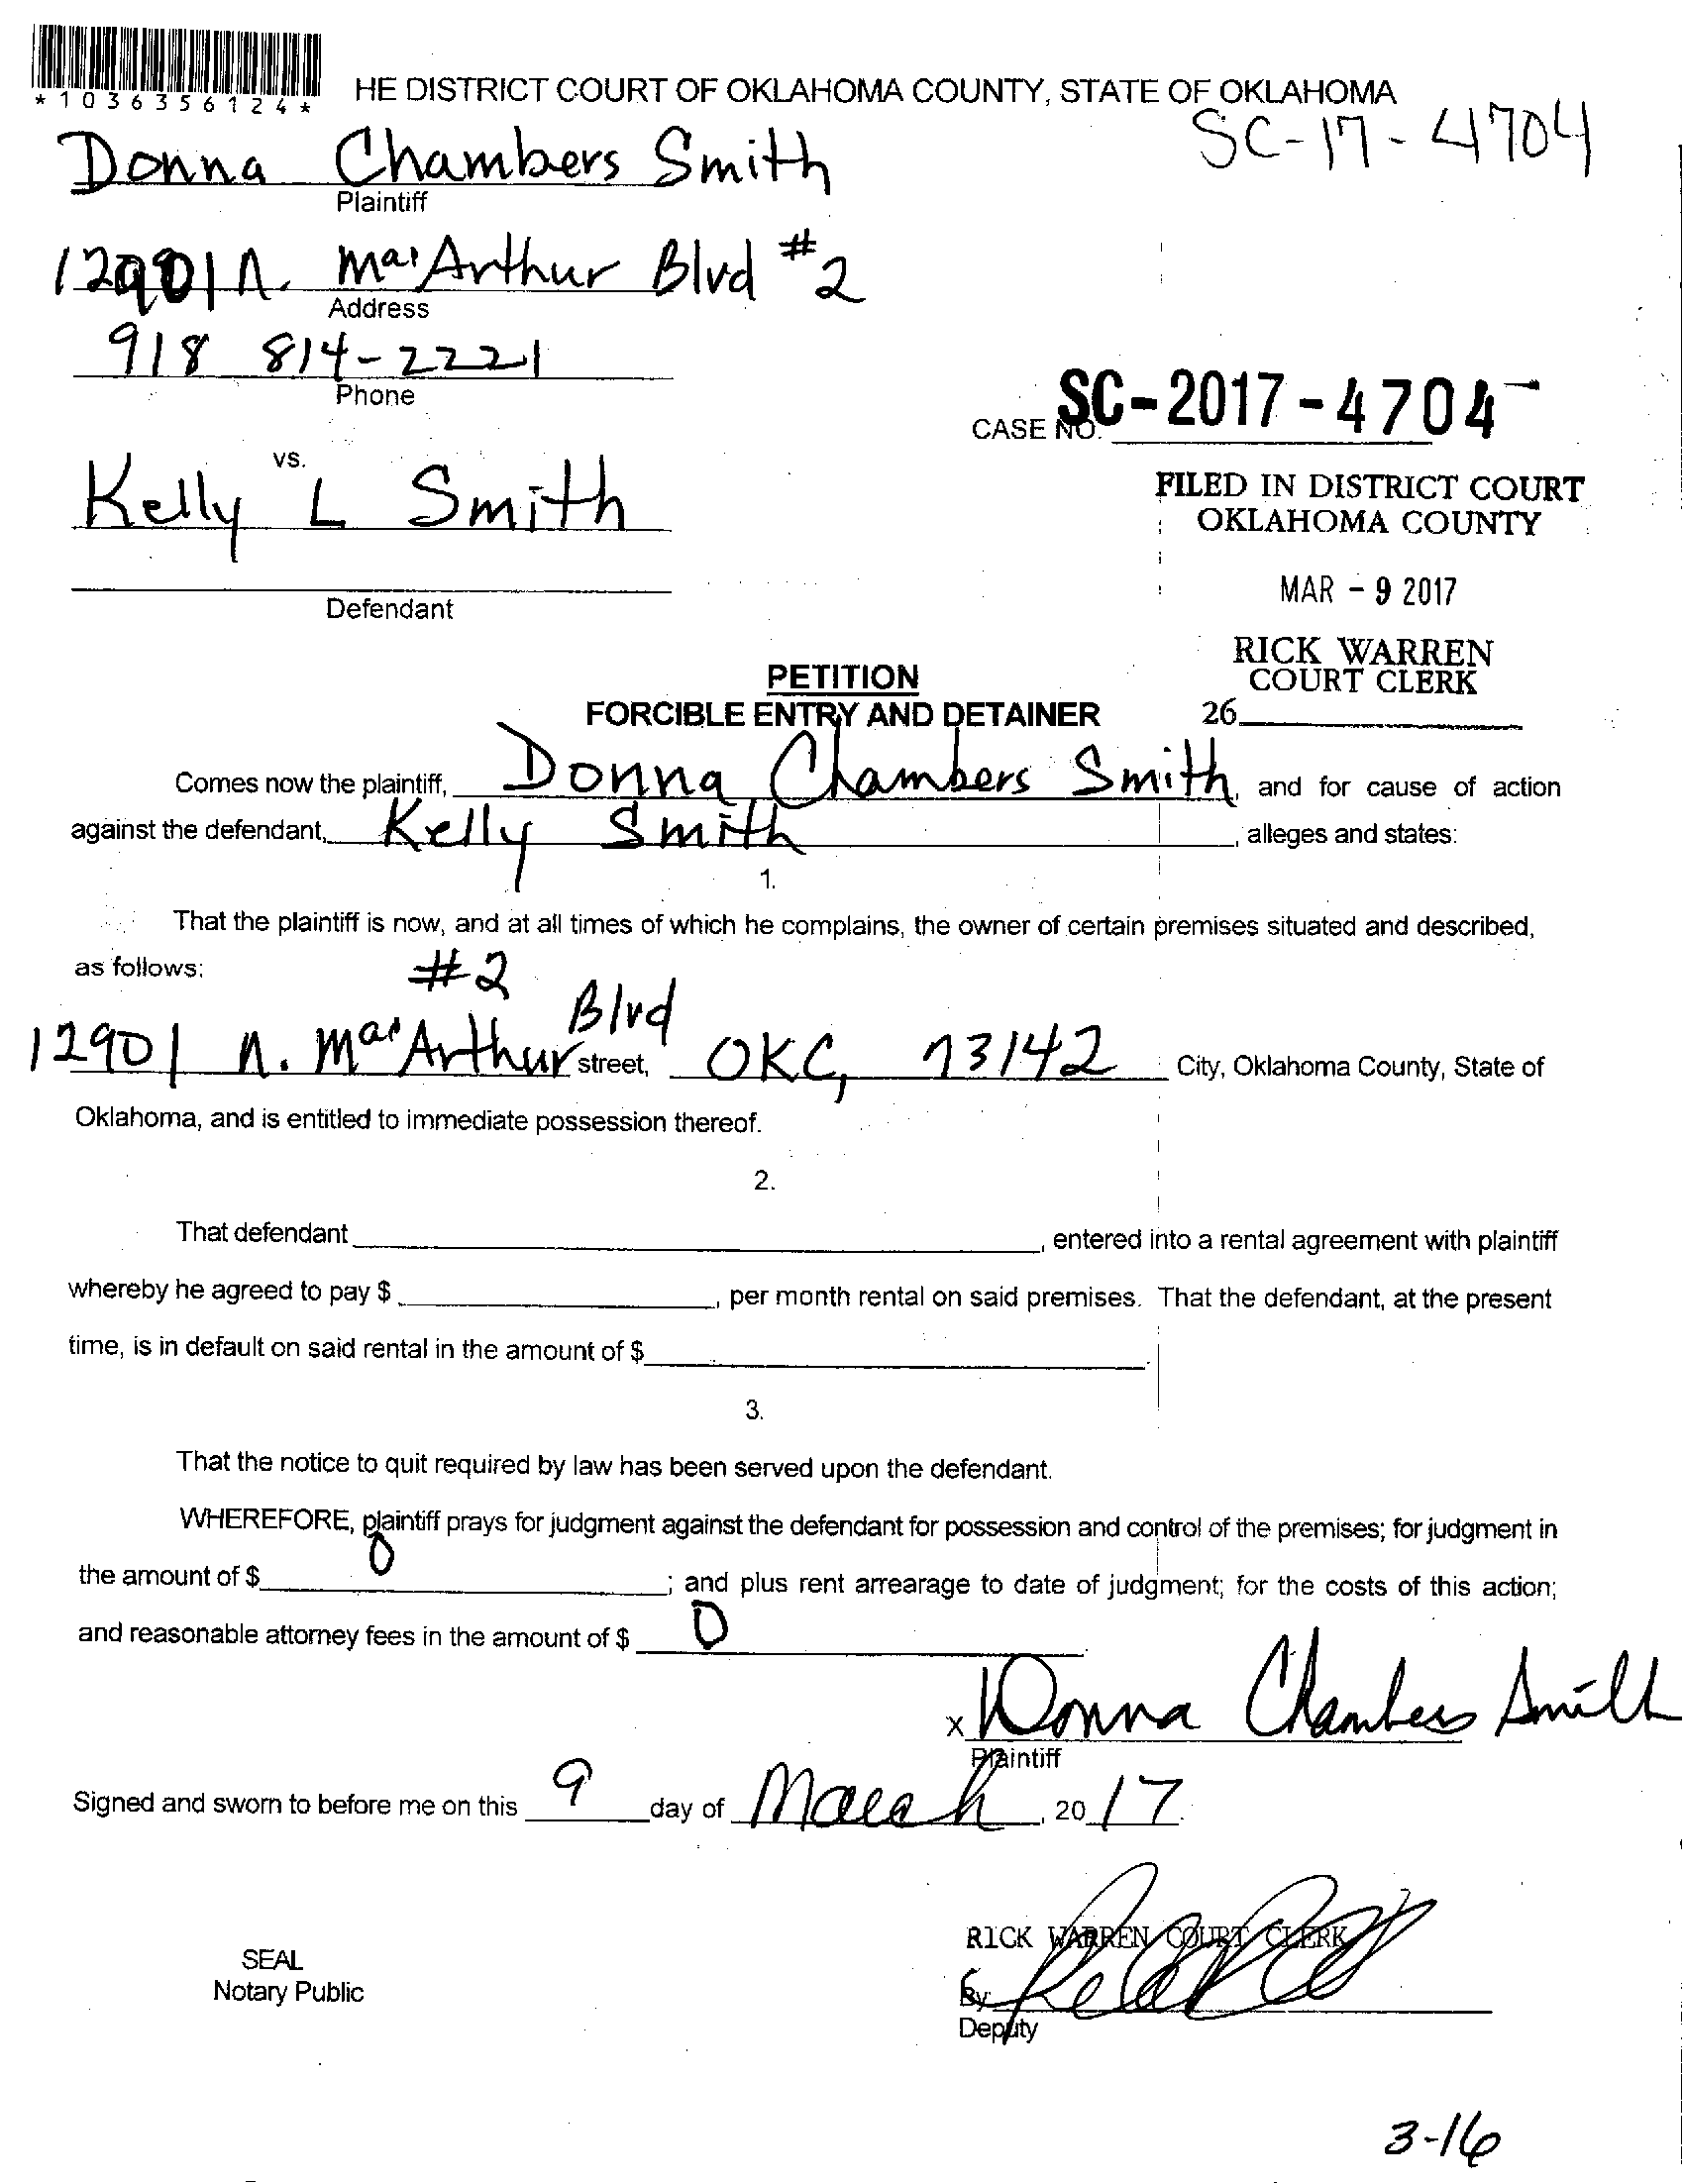 *1036356124*
HE DISTRICT COURT OF OKLAHOMA COUNTY, STATE OF OKLAHOMA
SC-17-4704
Donna Chambers Smith
Plaintiff
12901 N. MacArthur Blvd #2
Address
918 814-2221
Phone
CASE NO. SC-2017-4704
vs.
Kelly L Smith
FILED IN DISTRICT COURT
OKLAHOMA COUNTY
MAR - 9 2017
Defendant
RICK WARREN
COURT CLERK
26
PETITION
FORCIBLE ENTRY AND DETAINER
Comes now the plaintiff, Donna Chambers Smith, and for cause of action
against the defendant, Kelly Smith, alleges and states:
1.
That the plaintiff is now, and at all times of which he complains, the owner of certain premises situated and described,
as follows: #2
12901 N. MacArthur Blvd street, OKC, 73142 City, Oklahoma County, State of
Oklahoma, and is entitled to immediate possession thereof.
2.
That defendant , entered into a rental agreement with plaintiff
whereby he agreed to pay $ , per month rental on said premises. That the defendant, at the present
time, is in default on said rental in the amount of $ .
3.
That the notice to quit required by law has been served upon the defendant.
WHEREFORE, plaintiff prays for judgment against the defendant for possession and control of the premises; for judgment in
the amount of $ 0 ; and plus rent arrearage to date of judgment; for the costs of this action;
and reasonable attorney fees in the amount of $ 0 .
X Donna Chambers Smith
Plaintiff
Signed and sworn to before me on this 9 day of March, 20 17.
RICK WARREN COURT CLERK
SEAL
Notary Public
By
Deputy
3-16